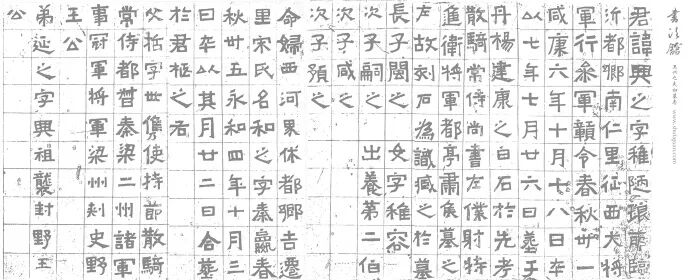 君諱興之字稚陋琅耶臨
沂都鄉南仁里征西大將
軍行參軍贛令春秋卅一
咸康六年十月十八日卒
以七年七月廿六日葬于
丹楊建康之白石於先考
散騎常侍尚書左僕射特
進衛將軍都亭肅侯墓之
左故刻石為識臧之於墓
長子閩之 女字稚容
次子嗣之 出養第二伯
次子咸之
次子預之
命婦西河界休都鄉吉遷
里宋氏名和之字秦嬴春
秋卅五永和四年十月三
日卒以其月廿二日合葬
於君柩之右
父哲字世儁使持節散騎
常侍都督秦梁二州諸軍
事冠軍將軍梁州刾史野
王公
弟延之字興祖襲封野王
公